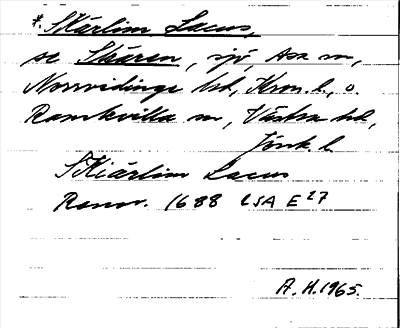 * Skärlim Lacus,
se Skären, sjö, Asa sn,
Norrvidinge hd, Kron. l., o.
Ramkvilla sn, Västra hd,
Jönk. l.
Skiärlim Lacus
Rannr. 1688 LSA E 27
A.H. 1965.